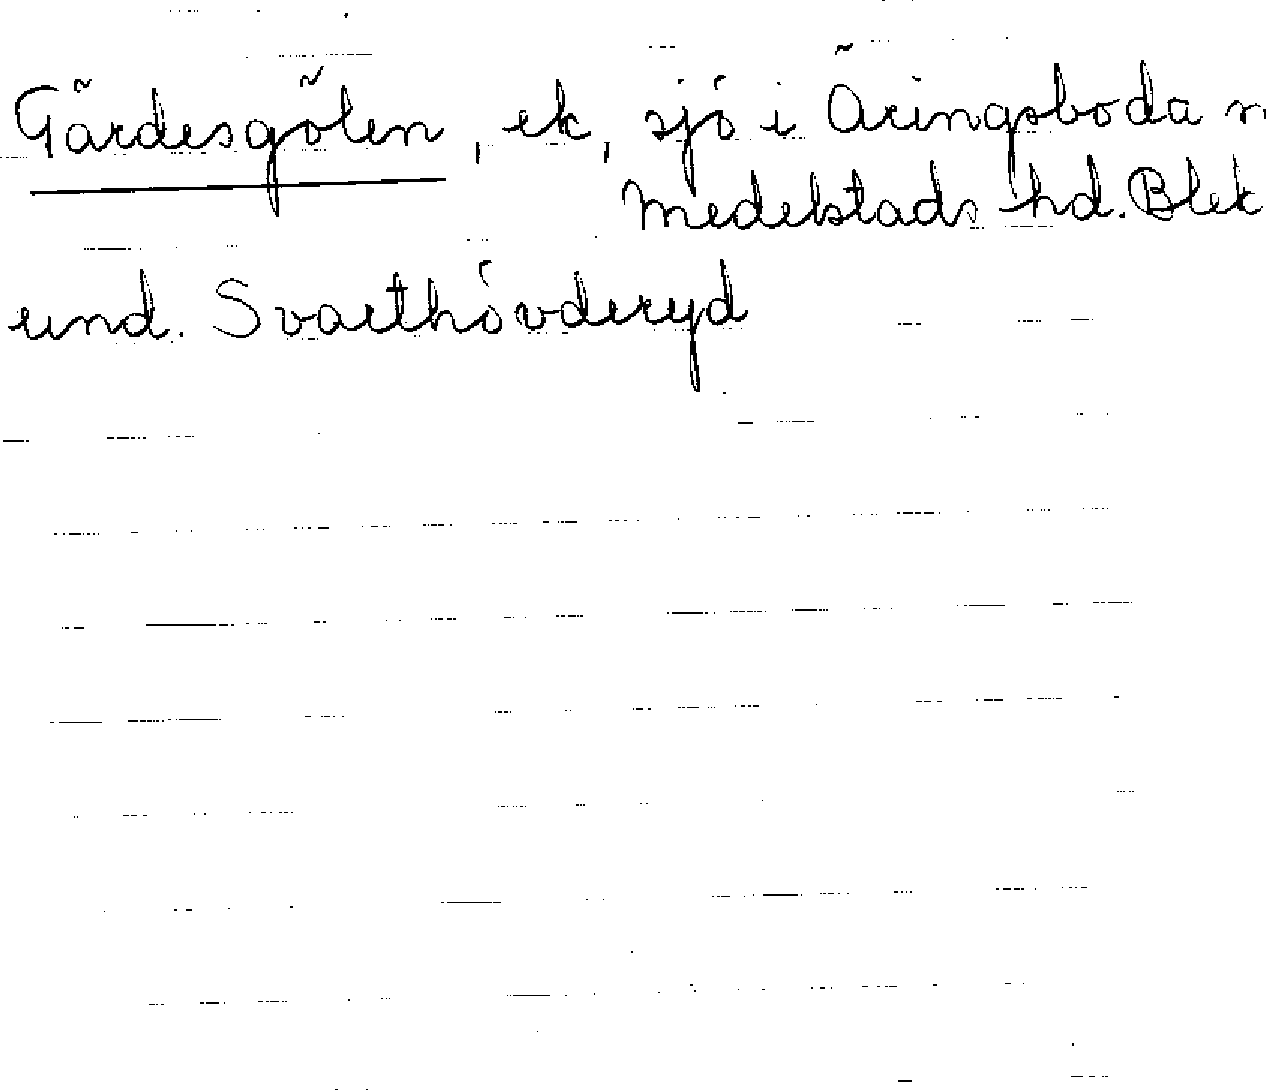 Gärdesgölen, ek, sjö i Äringsboda
Medelstads hd. Blek
und. Svarthövderyd